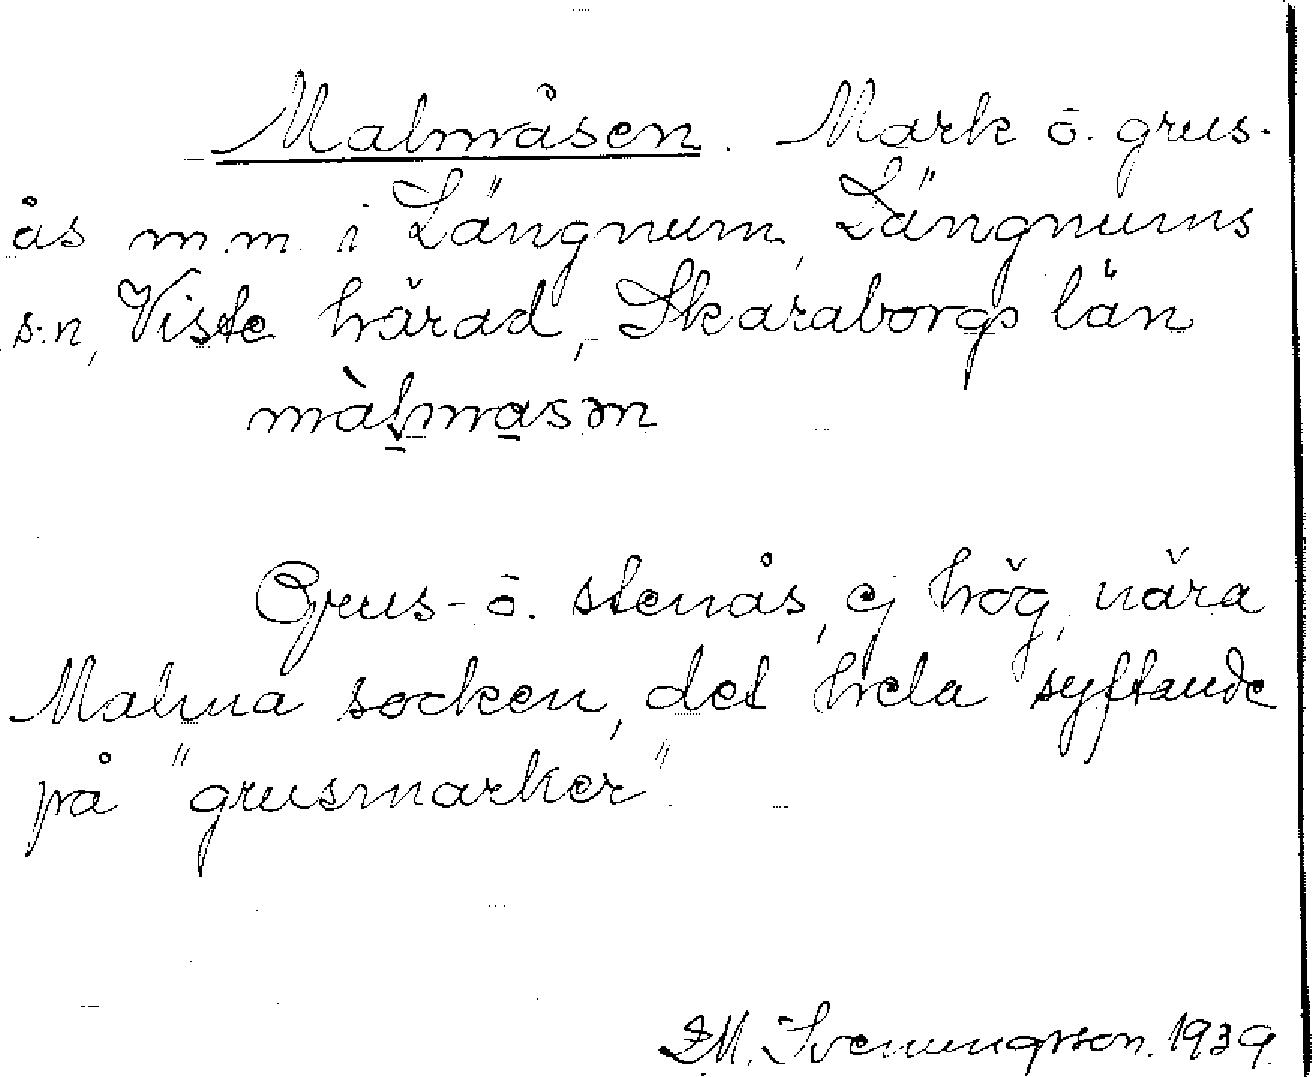 Malmåsen. Mark o. grus-
ås m.m. i Längnum, Längnums
s:n, Viste härad, Skaraborgs län
màl̠ma̠sən
Grus- o. stenås, ej hög, nära
Malma socken, det hela syftande
på "grusmarker".
Svenungsson. 1939